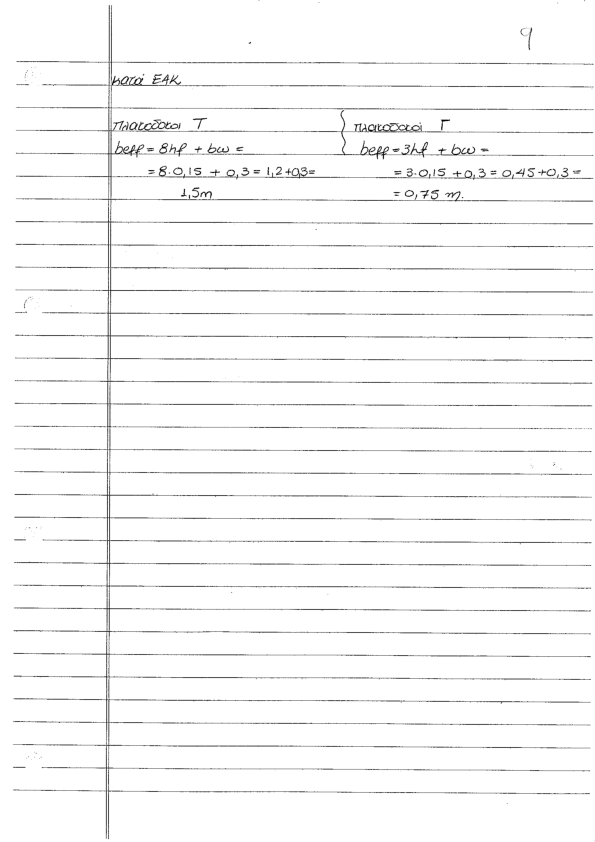 9
κατά ΕΑΚ
πλακοδοκοι Τ
beff = 8hf + bw =
= 8·0,15 + 0,3 = 1,2+0,3=
1,5m
πλακοδοκοί Γ
beff = 3hf + bw =
= 3·0,15 + 0,3 = 0,45+0,3 =
= 0,75 m.